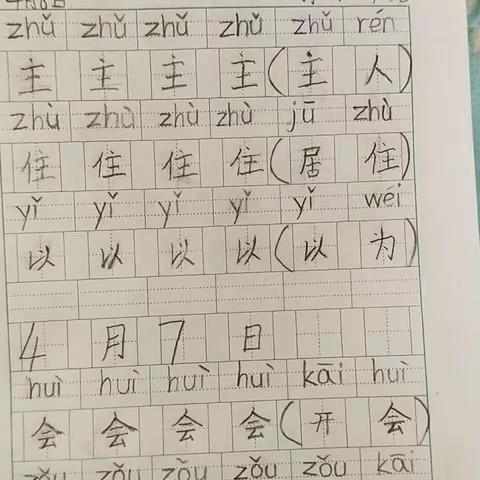 zhǔ zhǔ zhǔ zhǔ zhǔ rén
主 主 主 主 (主 人)
zhù zhù zhù zhù jū zhù
住 住 住 住 (居 住)
yǐ yǐ yǐ yǐ yǐ wéi
以 以 以 以 (以 为)
4 月 7 日
huì huì huì huì kāi huì
会 会 会 会 (开 会)
zǒu zǒu zǒu zǒu zǒu kāi